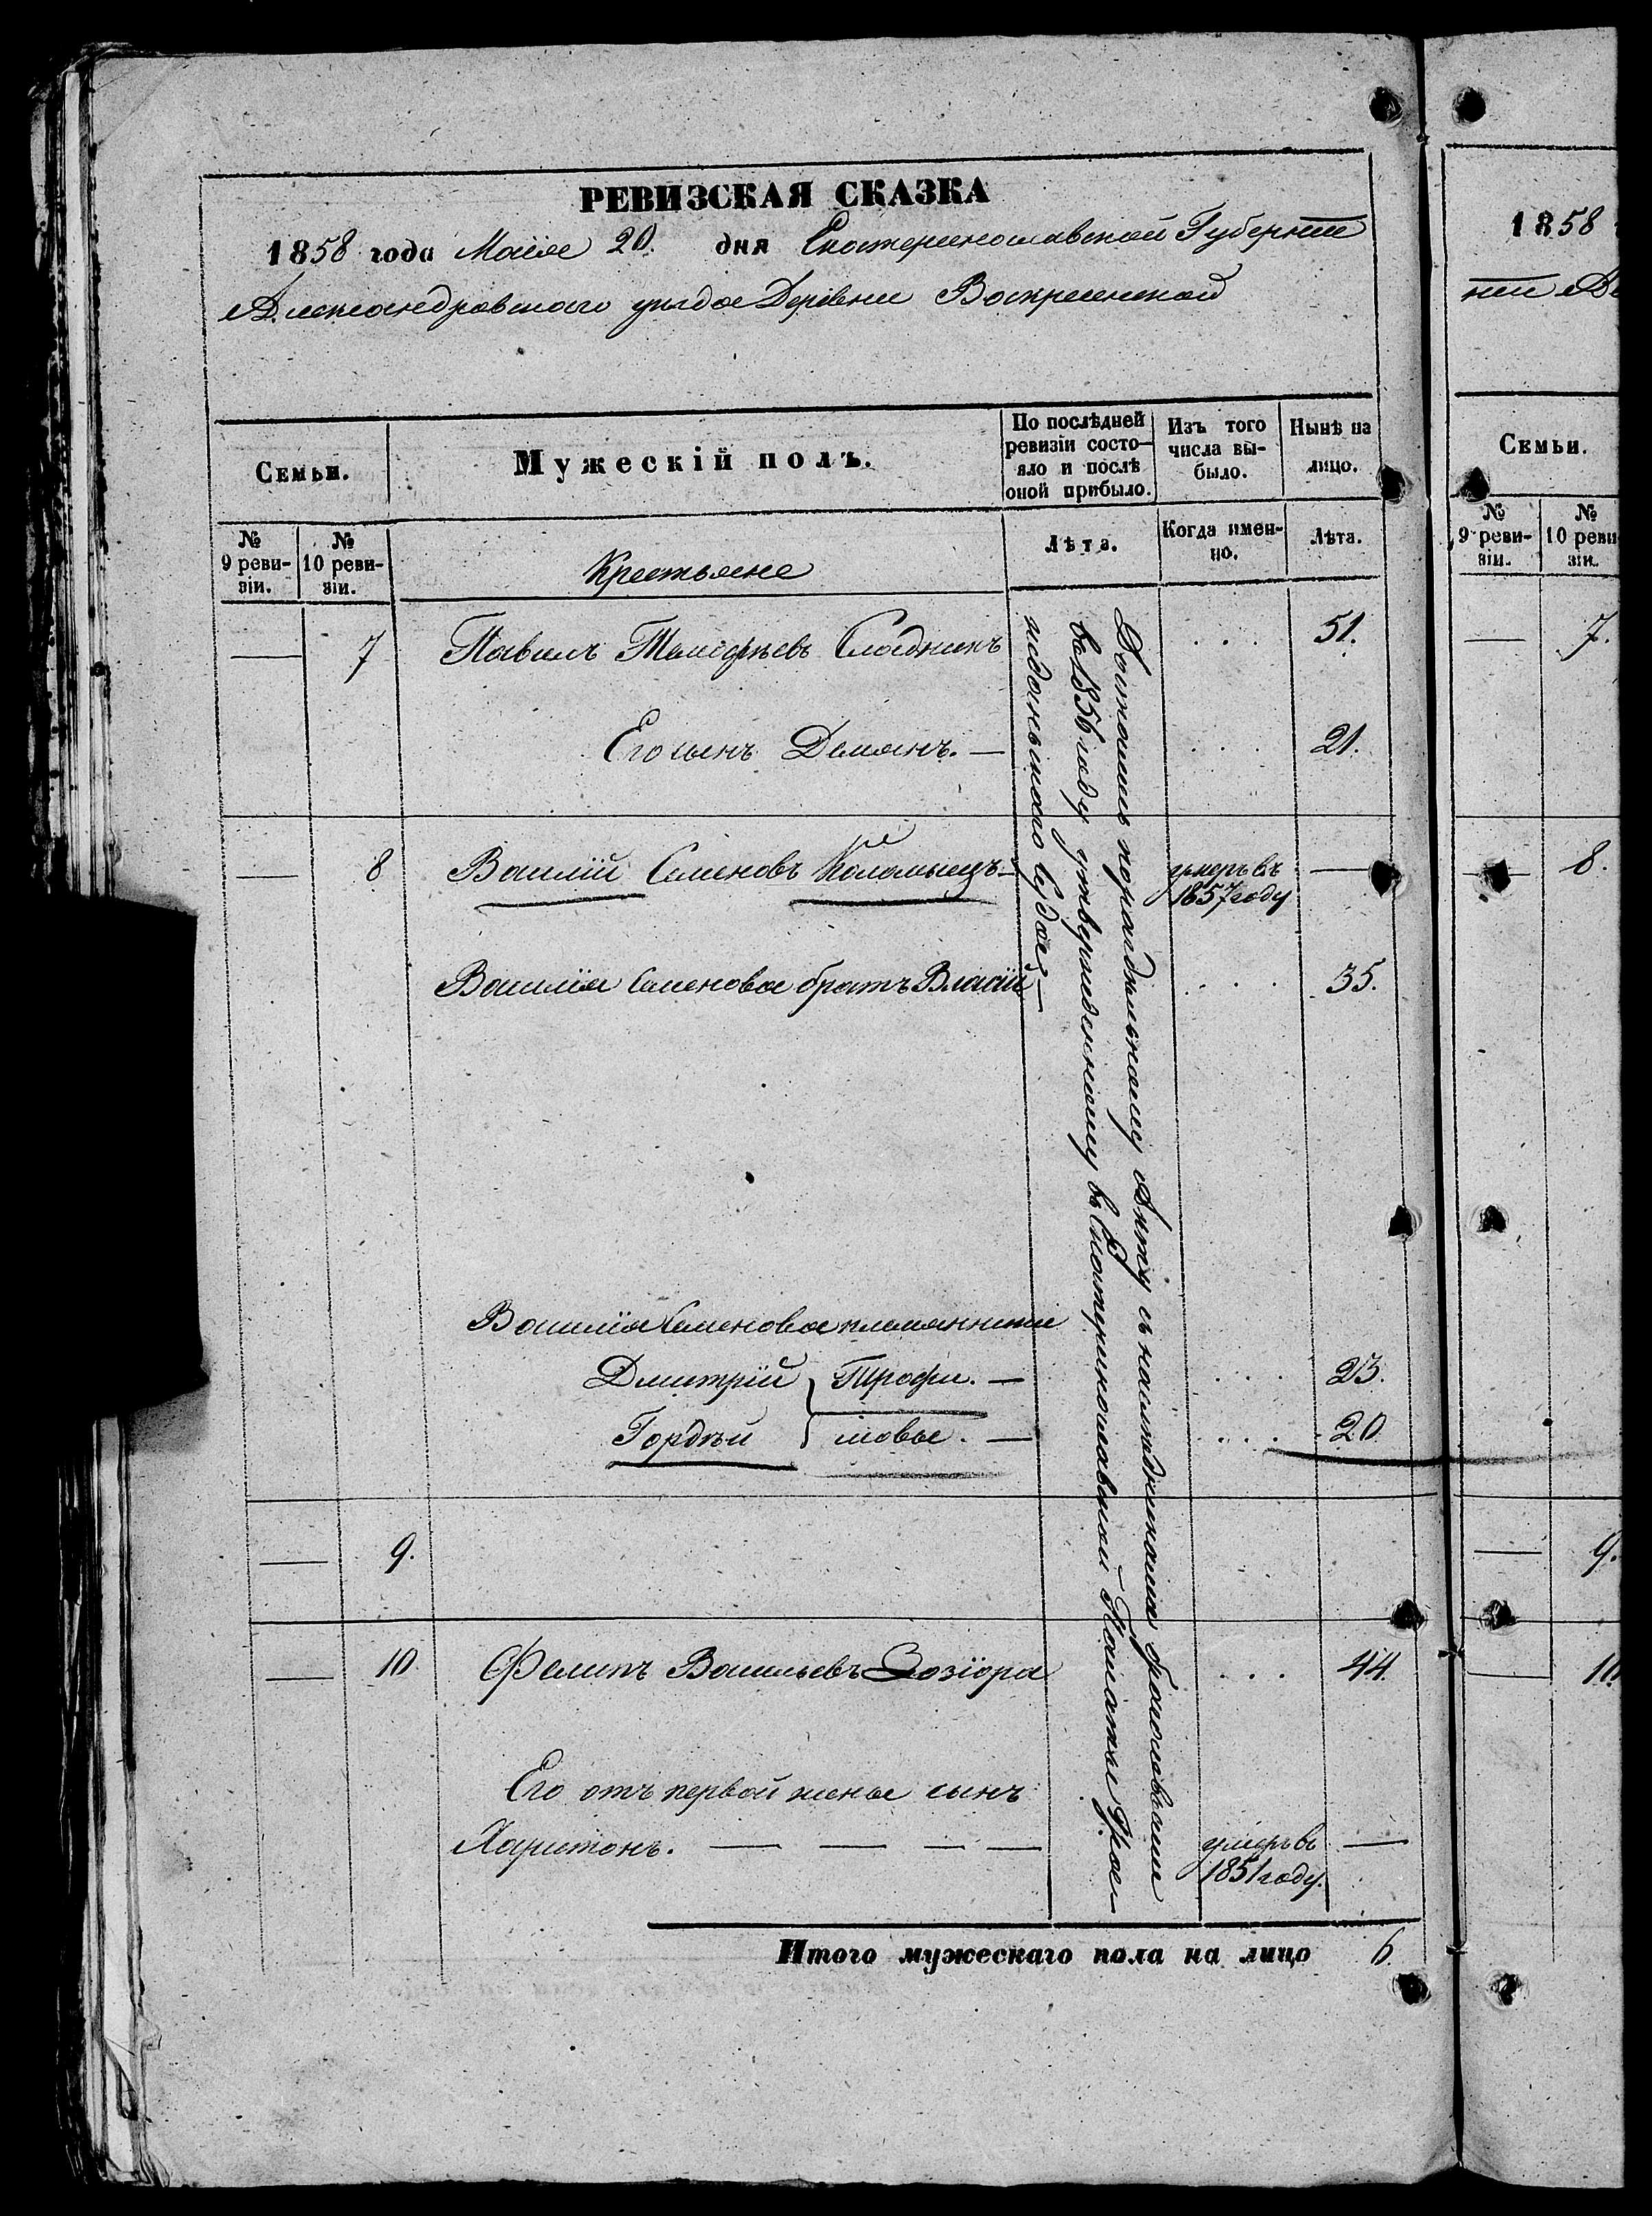 РЕВИЗСКАЯ СКАЗКА
1858 года Маія 20. дня Екатеринославской Губерніи
Александровскаго уѣзда Деревни Воскресенской
Семьи.
Мужескій полъ.
По послѣдней ревизіи состояло и послѣ оной прибыло.
Изъ того числа выбыло.
Нынѣ на лицо.
№ 9 ревизіи.
№ 10 ревизіи.
Крестьяне
Лѣта.
Когда именно.
Лѣта.
— 7 Павелъ Тимофѣевъ 51.
Его сынъ Демянъ. — 21.
— 8 Василій Семеновъ Коломыецъ — умеръ въ 1857 году —
Василія Семенова братъ Власій 35.
Василія Семенова племянники
Дмитрій Трофи. — 23.
Гордѣй мовы. — 20
— 9.
— 10 Филипъ Васильевъ Зозіора 44.
Его отъ первой жены сынъ
Харитонъ. — — — — умеръ въ 1851 году. —
Достались по раздѣльному Акту съ наслѣдниками
въ 1856 году утвержденному въ Екатеринославской Палатѣ Граж
жданскаго Суда —
Итого мужескаго пола на лицо 6.
1858
Семьи.
№ 9 ревизіи.
№ 10 реви
зіи.
— 7.
— 8.
— 9.
— 10